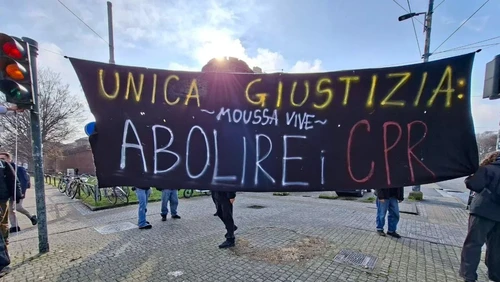 UNICA GIUSTIZIA:
~MOUSSA VIVE~
ABOLIRE i CPR